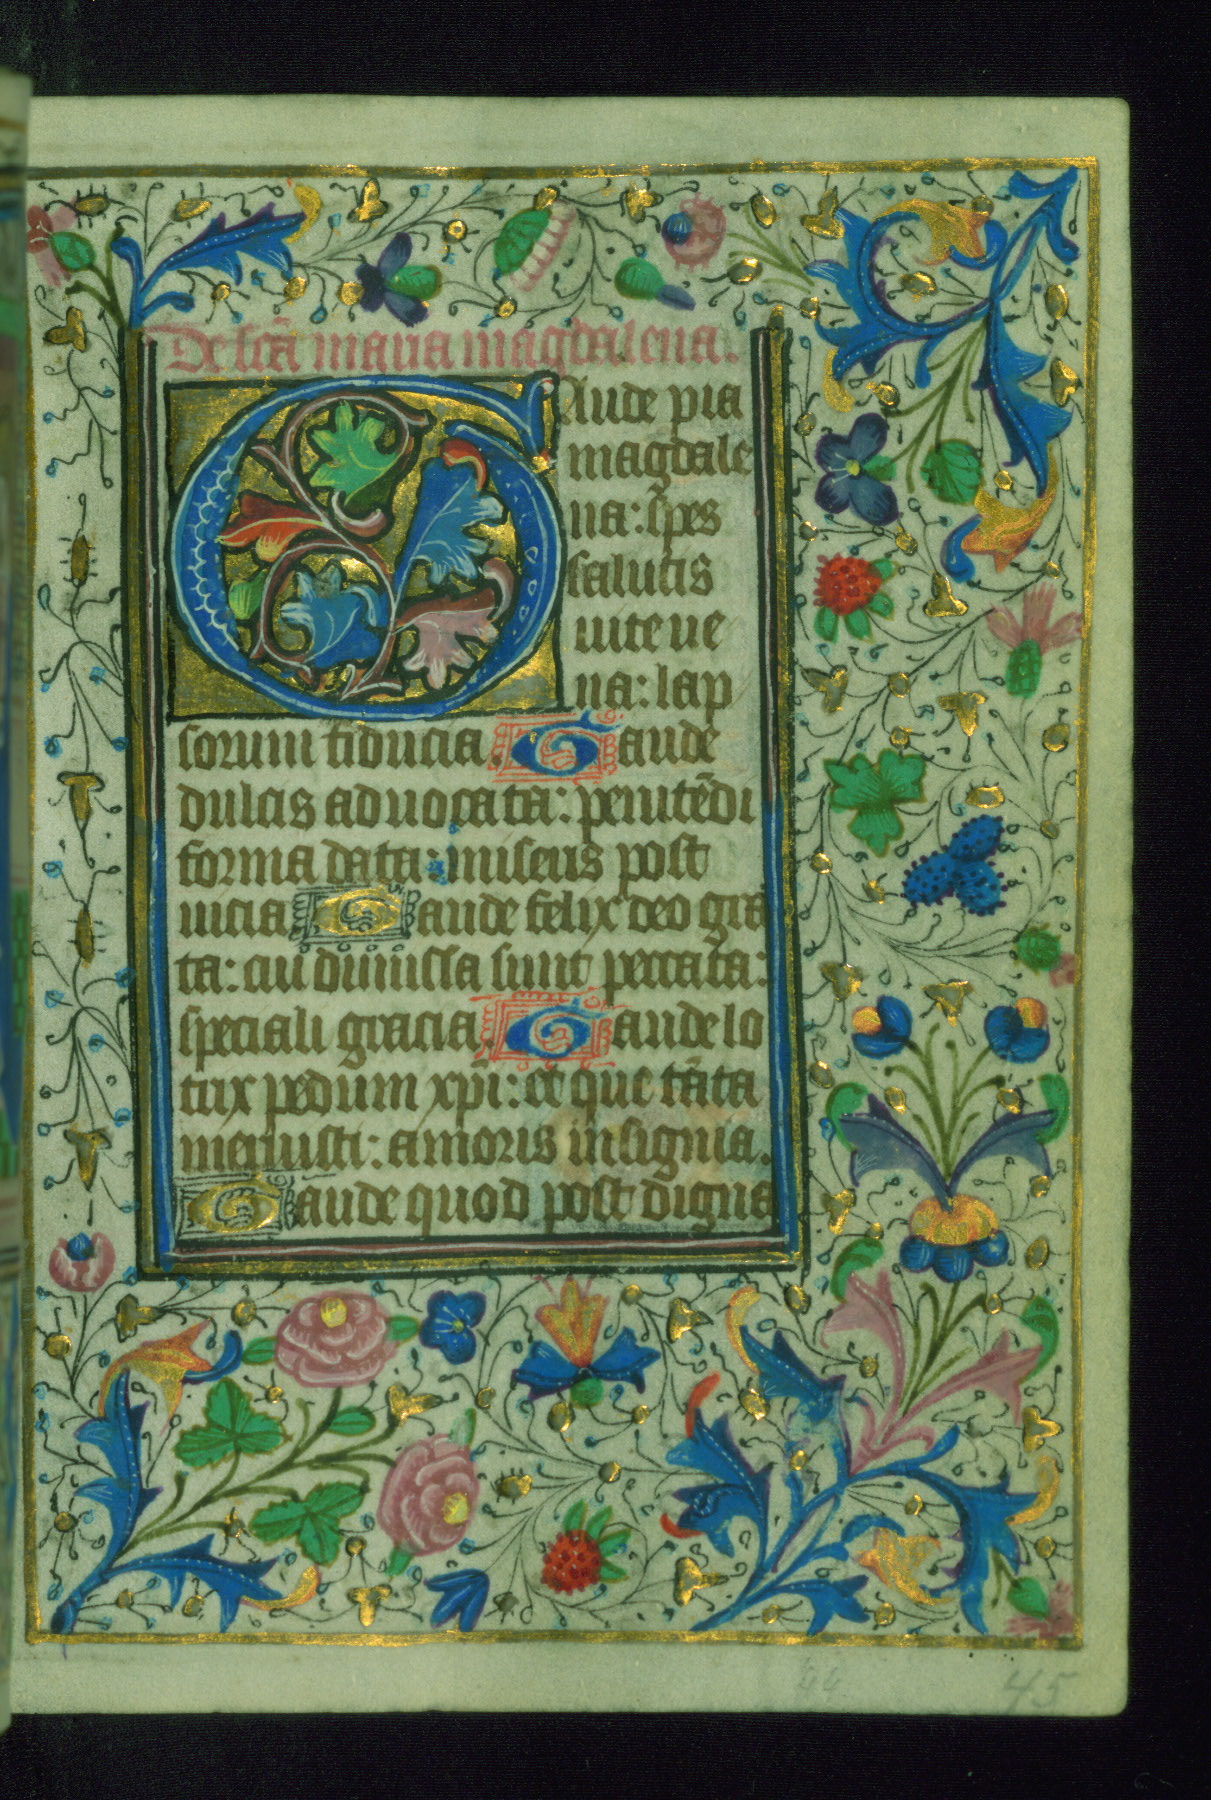 De scā maria magdalena.
GAude pia
magdale
na: spes
salutis
uite ue
na: lap
sorum fiducia. Gaude
dulcis aduocata: penitēdi
forma data: miseris post
uicia Gaude felix deo gra
ta: cui dimissa sunt peccata:
speciali gracia. Gaude lo
trix pedum xp̄i: ex que tāta
meruisti: amoris insignia.
Gaude quod post digna
44 45